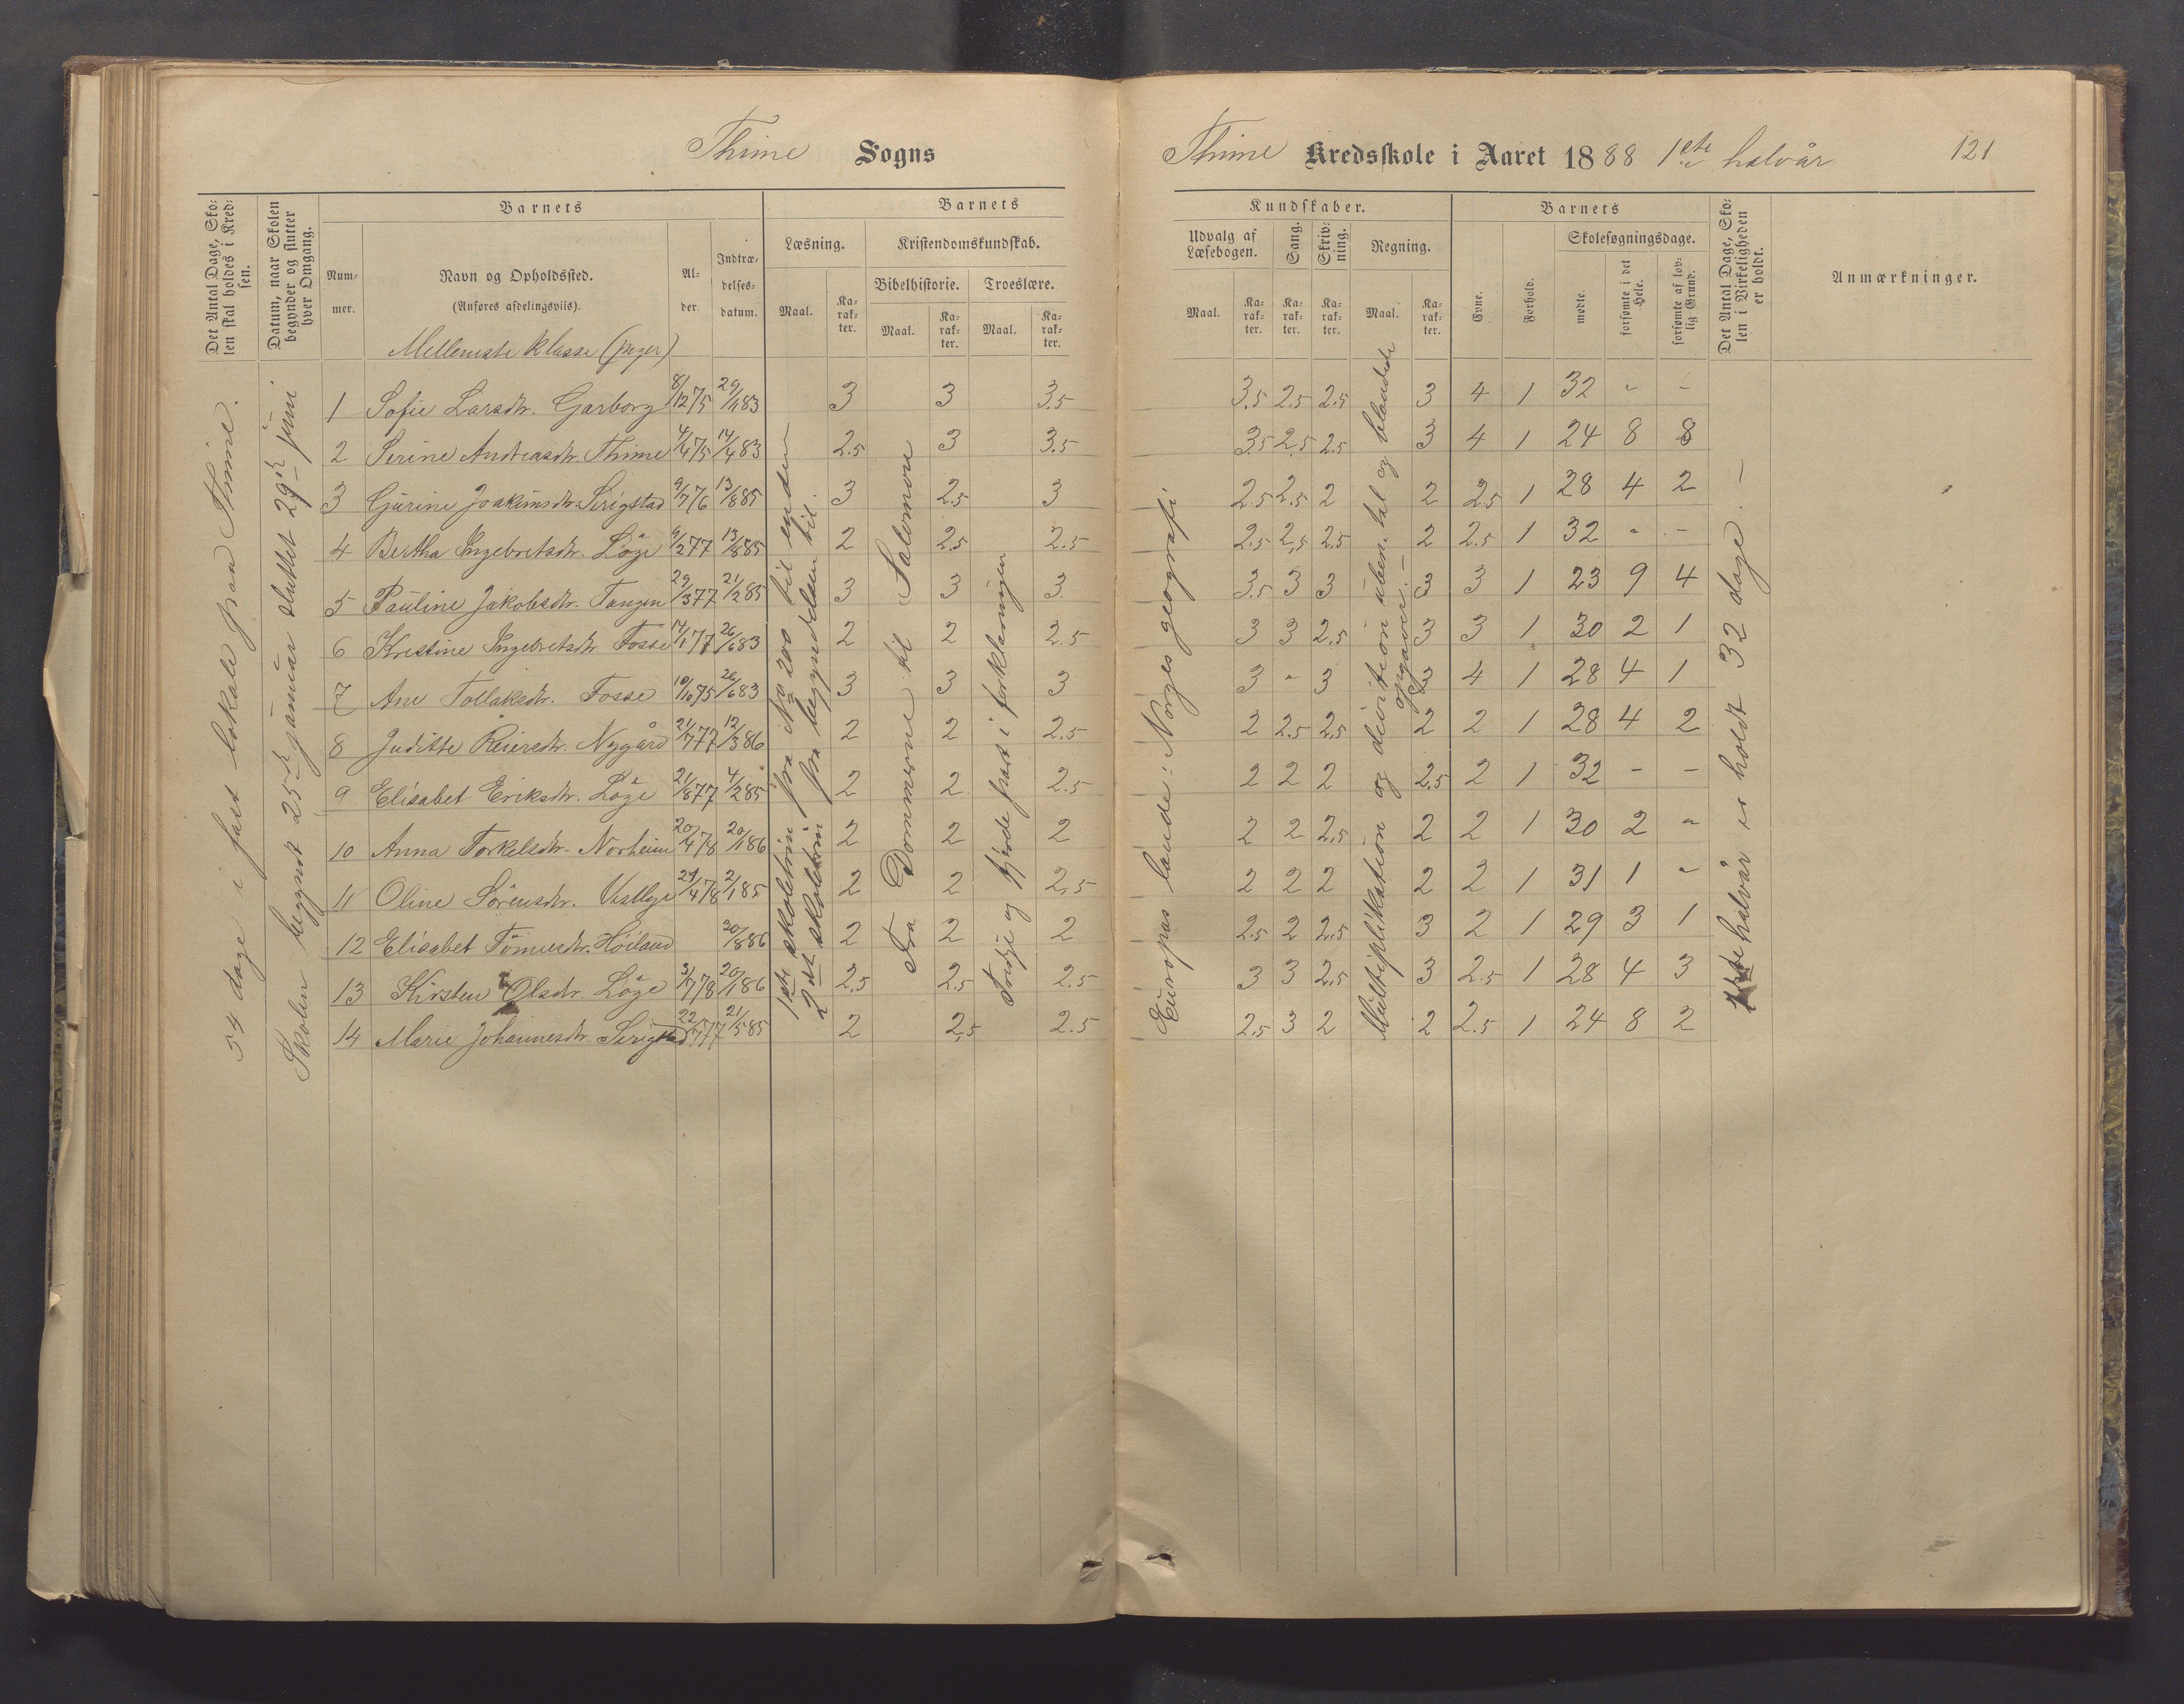 Thime Sogns
Thime Kredsskole i Aaret 1888 1ste halvår 121
Det Antal Dage, Skolen skal holdes i Kredsen.
Datum, naar Skolen begynder og slutter hver Omgang.
Barnets
Nummer.
Navn og Opholdssted.
(Anføres afdelingsviis).
Alder.
Indtrædelsesdatum.
Barnets
Læsning.
Kristendomskundskab.
Maal.
Karakter.
Bibelhistorie.
Troeslære.
Maal.
Karakter.
Maal.
Karakter.
Kundskaber.
Udvalg af Læsebogen.
Sang.
Skrivning.
Regning.
Maal.
Karakter.
Karakter.
Karakter.
Maal.
Karakter.
Barnets
Evne.
Forhold.
Skolesøgningsdage.
mødte.
forsømte i det Hele.
forsømte af lovlig Grund.
Det Antal Dage, Skolen i Virkeligheden er holdt.
Anmærkninger.
Mellemste klasse (piger)
34 dage i fast lokale paa Thime.
Skolen begyndt 25de januar sluttet 29de juni
1ste skoletrin fra No 200 til enden
2det skoletrin fra begyndelsen til.
Fra Dommerne til Salomon
Tredje og fjerde part i forklaringen
Europas lande: Norges geografi
Multiplikation og division uben. tal og blandede opgaver.-
1ste halvår er holdt 32 dage.-
1 Sofie Larsdtr. Garborg 8/12 75 29/11 83 3 3 3.5 3.5 2.5 2.5 3 4 1 32 - -
2 Serine Andreasdtr. Thime 4/4 75 14/4 83 2.5 3 3.5 3.5 2.5 2.5 3 4 1 24 8 8
3 Gurine Joakimsdtr. Serigstad 9/7 76 13/8 85 3 2.5 3 2.5 2.5 2 2 2.5 1 28 4 2
4 Bertha Ingebretsdtr. Løge 9/2 77 13/8 85 2 2.5 2.5 2.5 2.5 2.5 2 2.5 1 32 - -
5 Pauline Jakobsdtr. Tangen 29/3 77 21/2 85 3 3 3 3.5 3 3 3 3 1 23 9 4
6 Kristine Ingebretsdtr. Fosse 14/1 77 26/6 83 2 2 2.5 3 3 2.5 3 3 1 30 2 1
7 Ane Tollaksdtr. Fosse 10/10 75 26/6 83 3 3 3 3 - 3 3 4 1 28 4 1
8 Juditte Reiersdtr. Nygård 21/7 77 12/3 86 2 2 2.5 2 2.5 2.5 2 2 1 28 4 2
9 Elisabet Eriksdtr. Løge 21/8 77 4/2 85 2 2 2.5 2 2 2 2.5 2 1 32 - -
10 Anna Torkelsdtr. Norheim 20/4 78 20/1 86 2 2 2 2 2 2.5 2 2 1 30 2 -
11 Oline Sörensdtr. 24/4 78 2/1 85 2 2 2.5 2 2 2 2 2 1 31 1 -
12 Elisabet Tönnesdtr. Höiland 20/8 86 2 2 2 2.5 2 2.5 3 2 1 29 3 1
13 Kirsten Olsdtr. Løge 3/7 78 20/1 86 2.5 2.5 2.5 3 3 2.5 3 2.5 1 28 4 3
14 Marie Johannesdtr. Serigstad 22/7 77 21/5 85 2 2.5 2.5 2.5 3 2 2 2.5 1 24 8 2